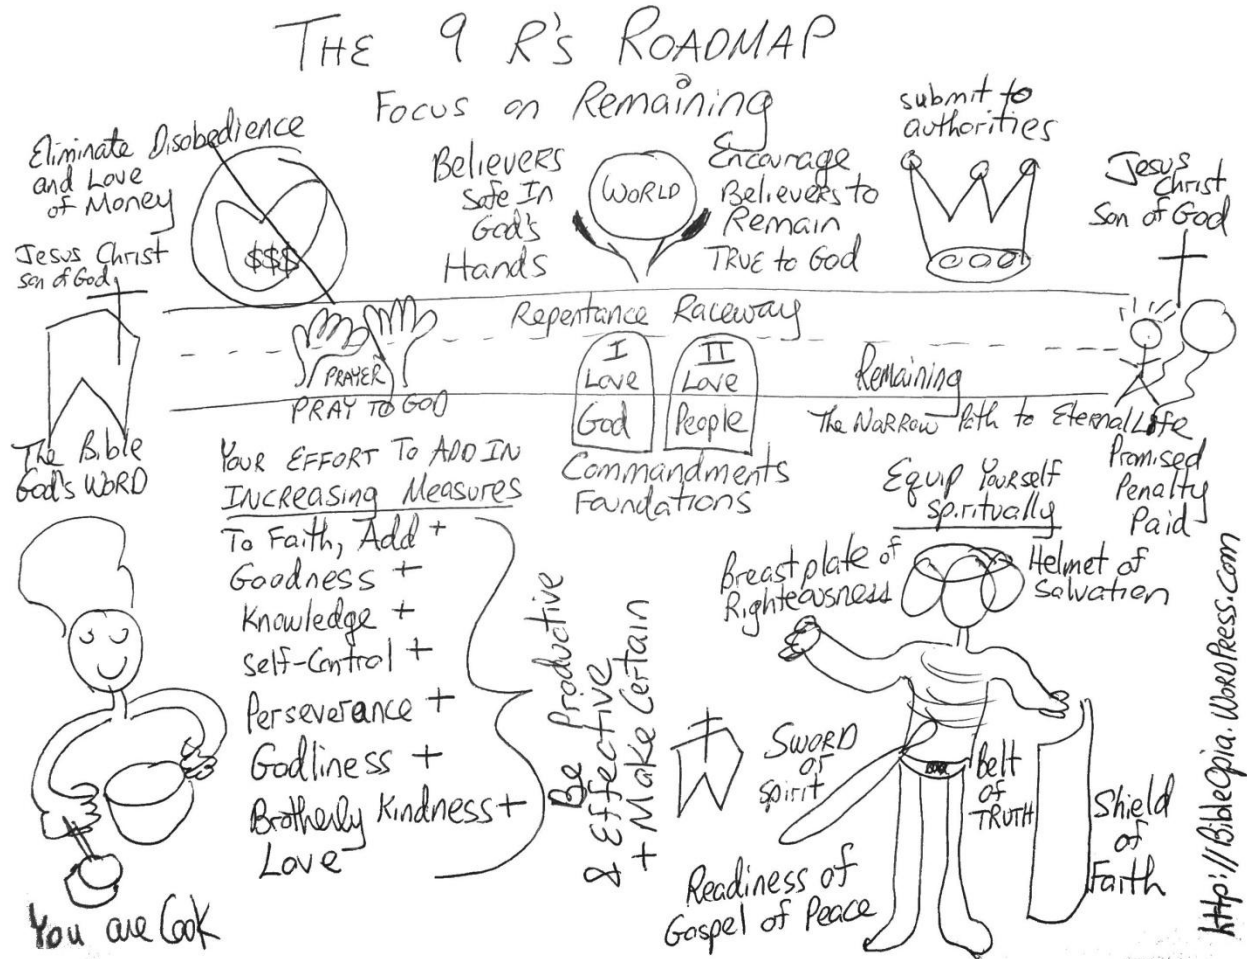 THE 9 R'S ROADMAP
Focus on Remaining
Eliminate Disobedience
and Love
of Money
$$$
Believers
Safe In
God's
Hands
WORLD
Encourage
Believers to
Remain
TRUE to God
submit to
authorities
Jesus
Christ
Son of God
Jesus Christ
son of God
Repentance Raceway
PRAYER
PRAY TO GOD
I
Love
God
II
Love
People
Commandments
Foundations
Remaining
The Narrow Path to Eternal Life
Promised
Penalty
Paid
The Bible
God's WORD
YOUR EFFORT To ADD IN
INCREASING Measures
To Faith, Add +
Goodness +
Knowledge +
Self-Control +
Perseverance +
Godliness +
Brotherly Kindness +
Love
Be Productive
& Effective
+ Make Certain
You are Cook
Equip Yourself
spiritually
Breastplate of
Righteousness
Helmet of
Salvation
SWORD
of
Spirit
Belt
of
TRUTH
Shield
of
Faith
Readiness of
Gospel of Peace
http://Bibleopia.WordPress.com